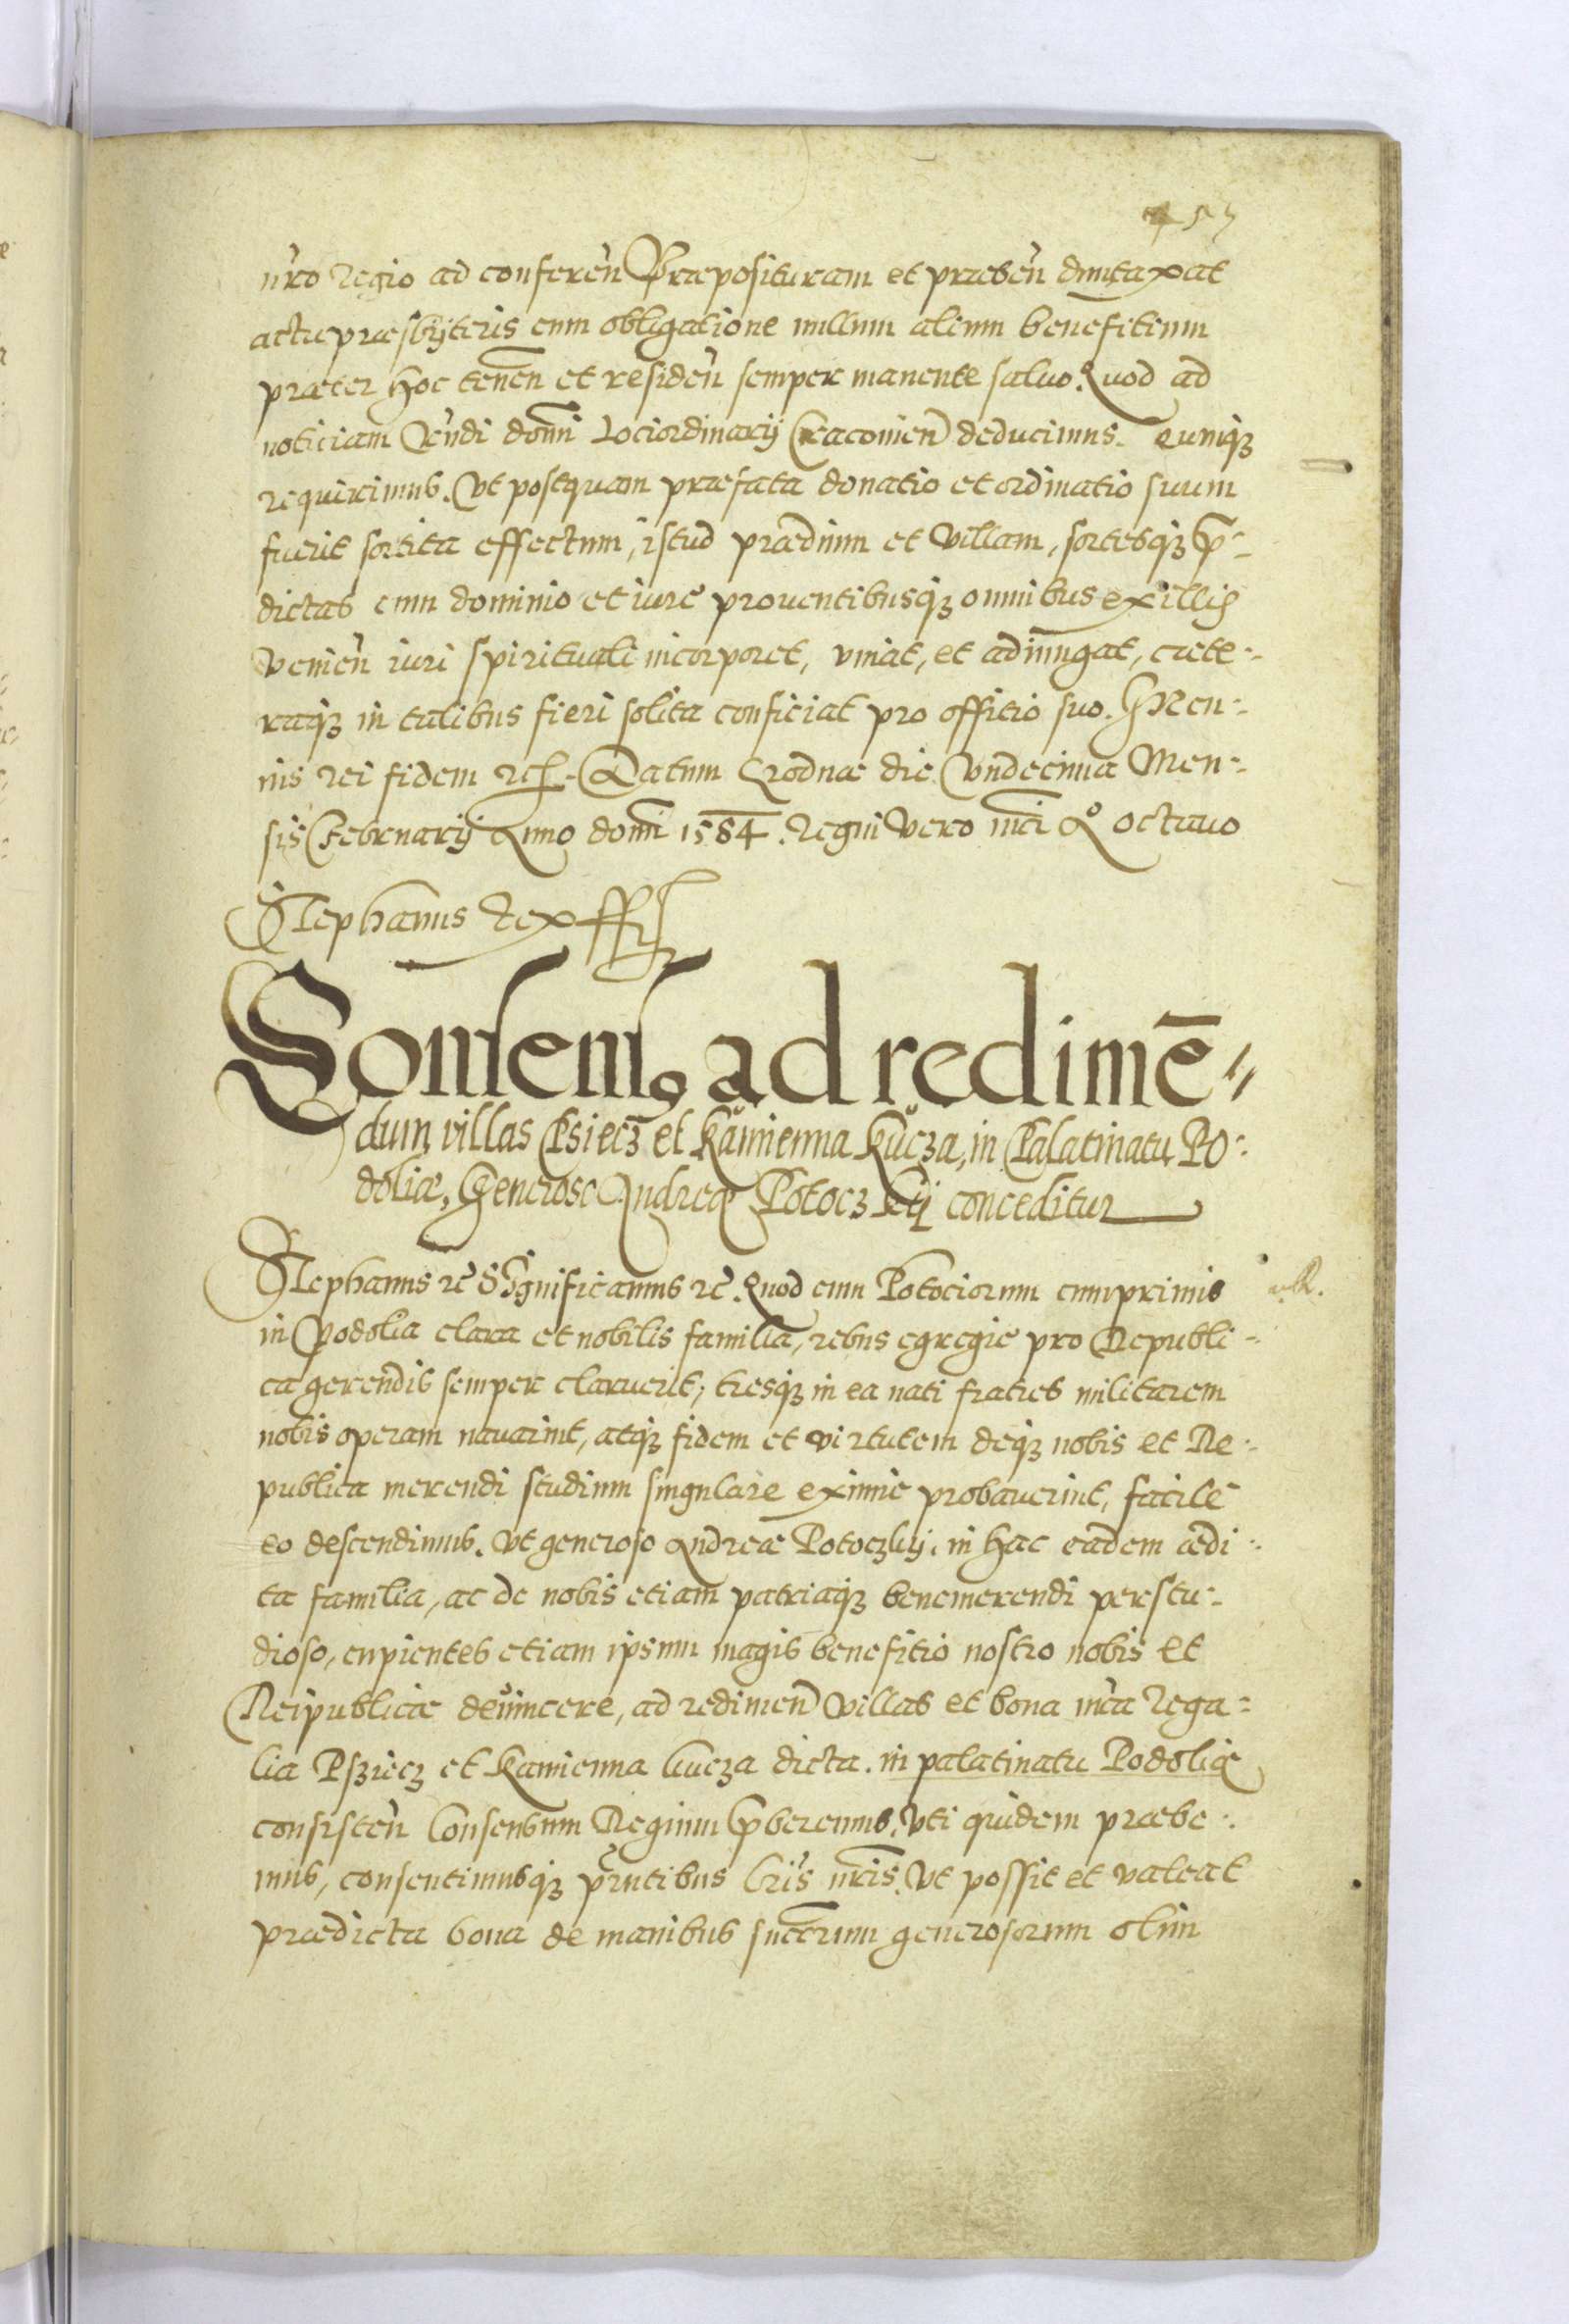 457
nr̃o regio ad conferen̄ Præposituram et præben̄ duntaxat
actu præsbÿteris cum obligatione nullum alium benefitium
præter hoc tenen̄ et residen̄ semper manente saluo. Quod ad
noticiam Rn̄di domi Lociordinarij Cracouien̄ deducimus. Eumqȝ
requirimus. Vt postquam præfata donatio et ordinatio suum
fuerit sortita effectum, istud prædium et villam, sortesqȝ p̄-
dictas cum dominio et iure prouentibusqȝ omnibus ex illis
venien̄ iuri spirituali incorporet, vniat, et adiungat, cæte-
raqȝ in talibus fieri solita conficiat pro offitio suo. In cu-
ius rei fidem etc. Datum Grodnæ die Vndecima Men-
sis Februarij Anno domi 1584. Regni vero nri Aº octauo
Stephanus Rex ssp̄t
Consens9 ad redimē-
dum villas Psiecz et Kamienna Kucza, in Palatinatu Po-
doliæ, Generoso Andreæ Potoczkij conceditur
Stephanus etc Significamus etc. Quod cum Potociorum cumprimis
R.
in Podolia clara et nobilis familia, rebus egregie pro Republi-
ca gerendis semper claruerit, tresqȝ in ea nati fratres militarem
nobis operam nauarint, atqȝ fidem et virtutem deqȝ nobis et Re-
publica merendi studium singulare eximie probauerint, facile
eo descendimus. Vt generoso Andreæ Potoczkij. in hac eadem ædi-
ta familia, ac de nobis etiam patriaqȝ benemerendi perstu-
dioso, cupientes etiam ipsum magis benefitio nostro nobis et
Reipublicæ deuincere, ad redimen̄ villas et bona nr̃a Rega-
lia Psziecz et Kamienna kucza dicta. in palatinatu Podoliæ
consisten̄ Consensum Regium p̄beremus. Vti quidem præbe-
mus, consentimusqȝ p̄ntibus lr̃is nr̃is. Vt possit et valeat
prædicta bona de manibus succrum generosorum olim